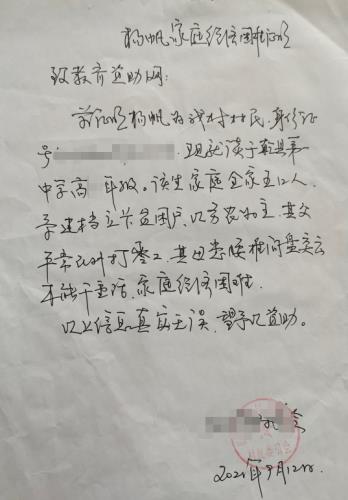 杨帆家庭经济困难证明
致教育资助网:
兹证明杨帆为我村村民,身份证
号 ,现就读于乾县第
中学高 年级。该生家庭全家五口人,
系建档立卡贫困户,以务农为主,其父
平常在外打零工,其母患腰椎间盘突出
不能干重活,家庭经济困难.
以上信息真实无误,望予以资助。
村民委员会
2021年9月12日